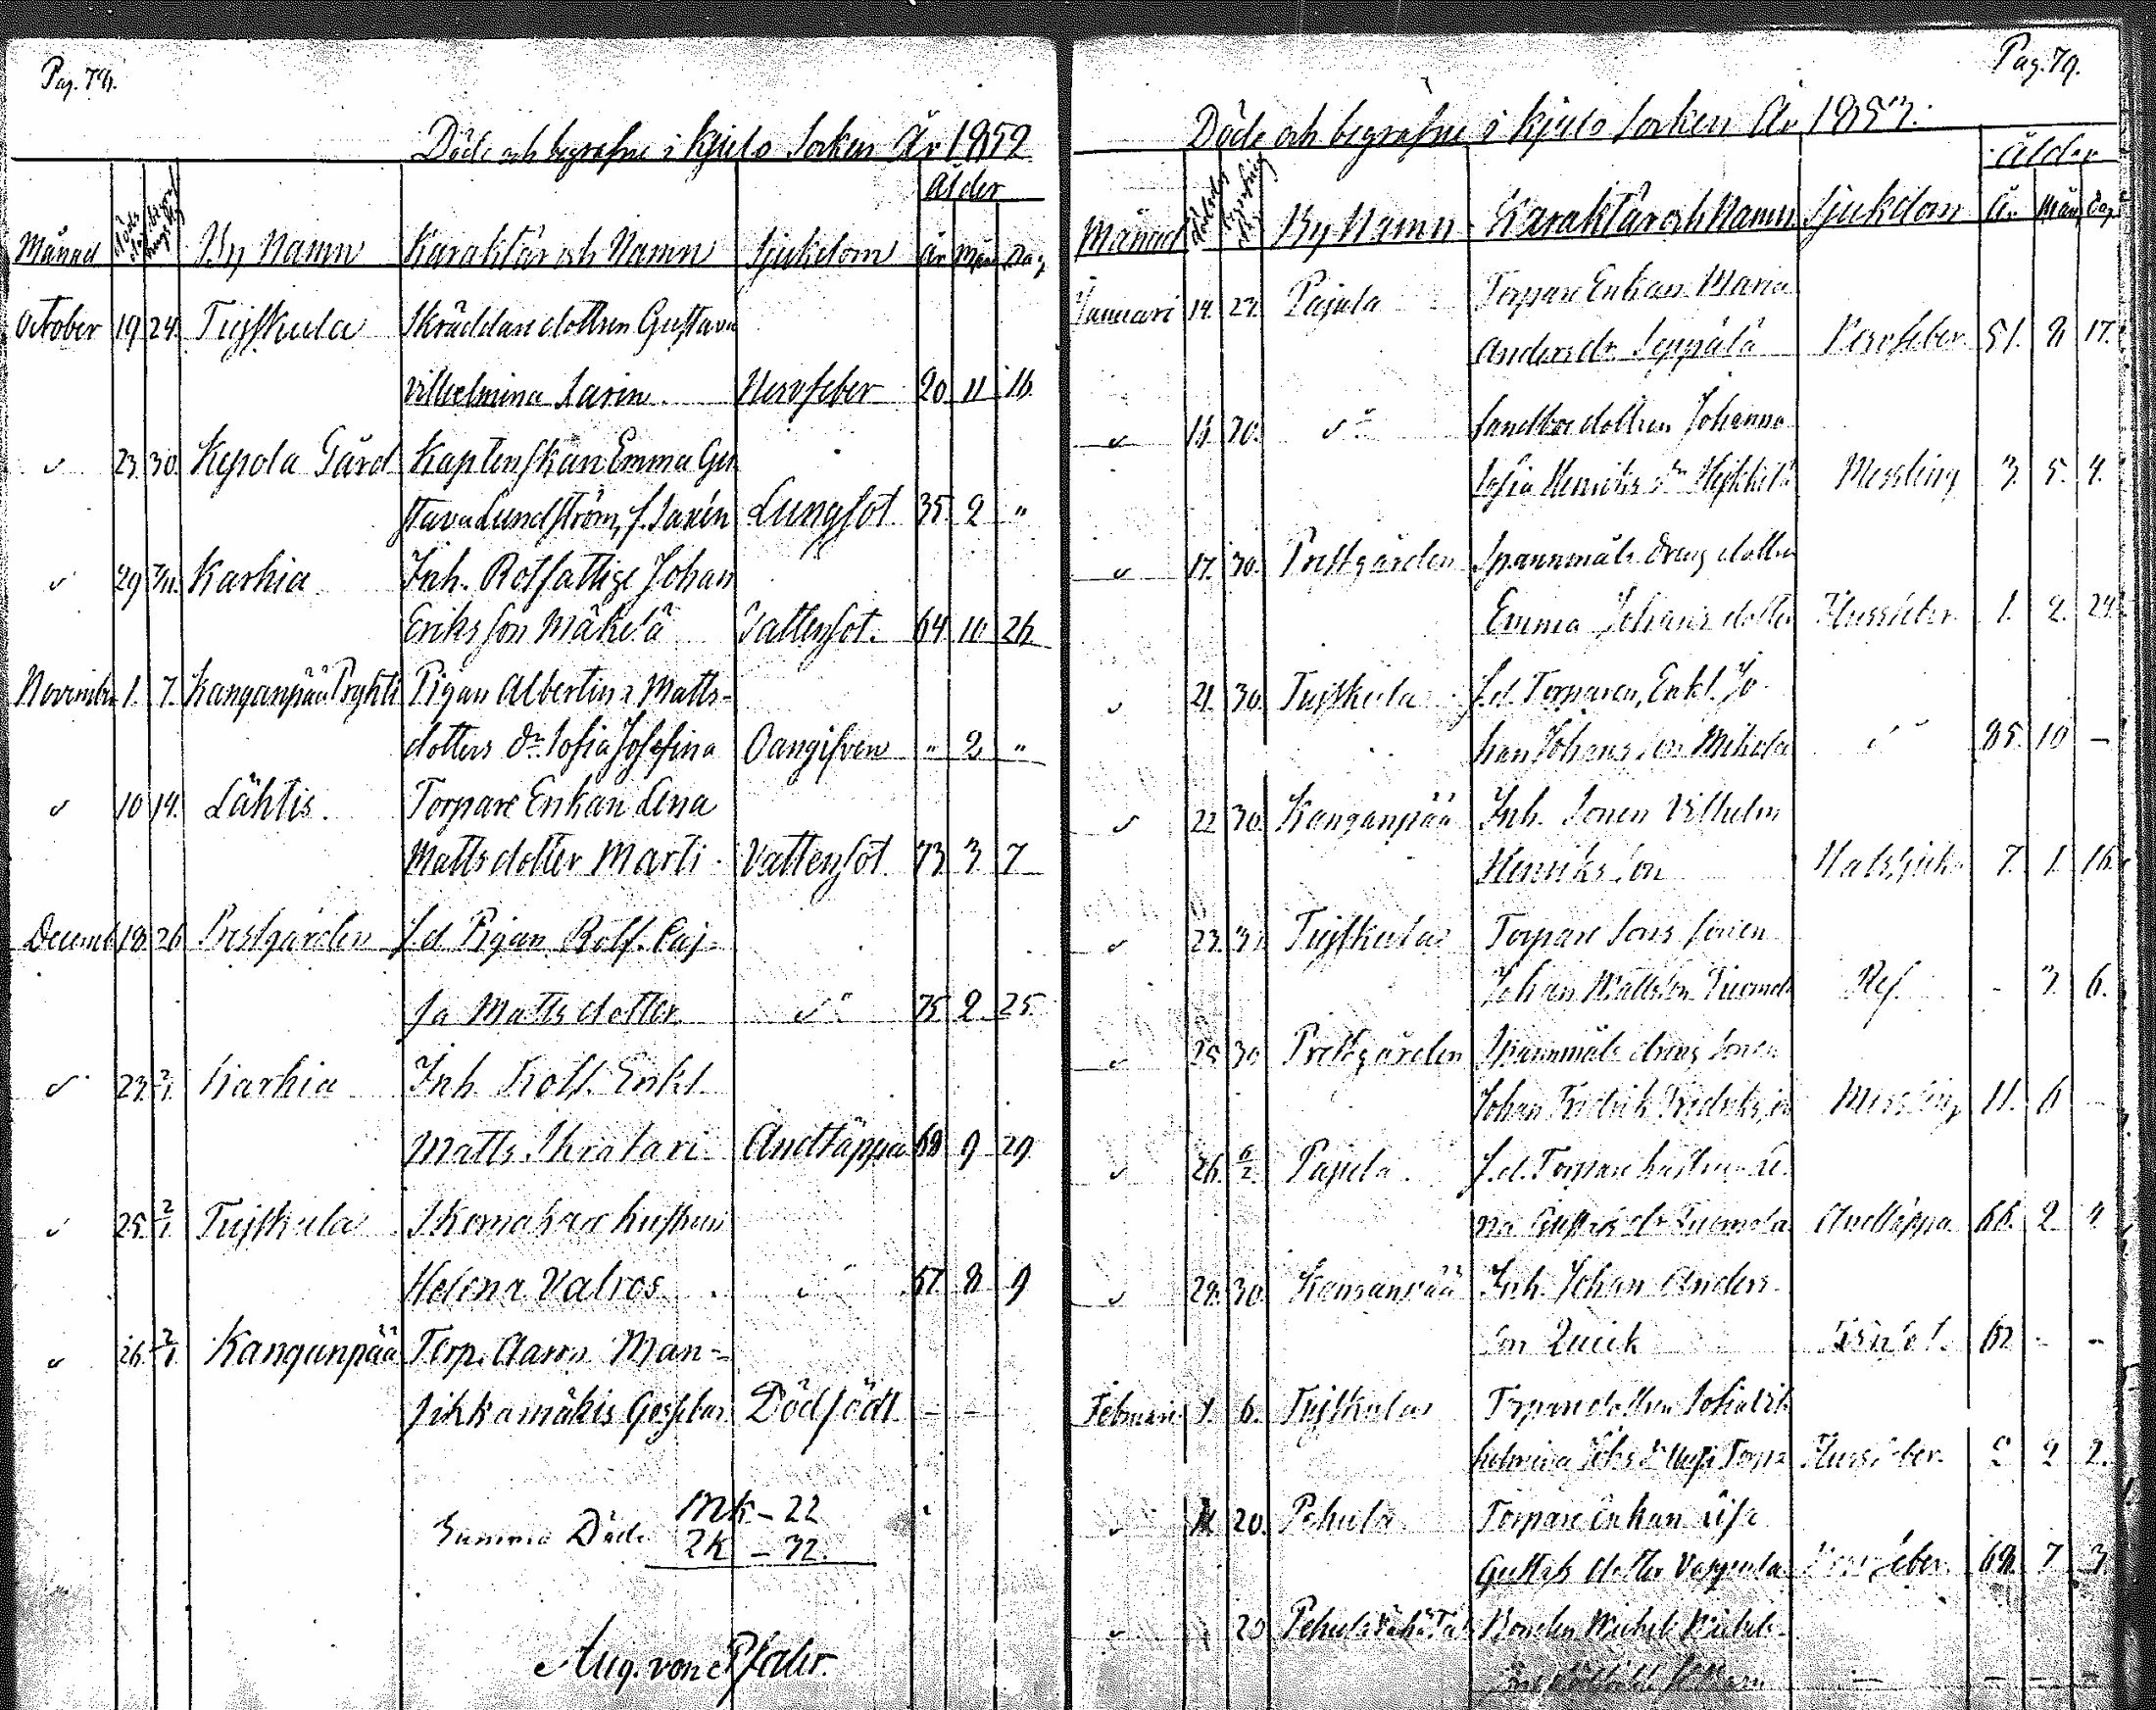 Pag. 78.
Döde och begrafne i Kjulo Socken År 1852
Ålder
Månad By Namn Karaktär och Namn Sjukdom År Mån Dag
October 19 24. Tujskula Skräddare dottren Gustava
Vilhelmina Sarin Nervfeber 20 11 16.
" 23. 30. Kepola Gård Kaptenskan Emma Gu
stava Lundström, f. Sarén Lungsot 35 2 "
" 29 Karhia Inh. Rotfattige Johan
Eriksson Mäkelä Vattensot. 64 10 26
November 1. 7. Kanganpää Pryhti Pigan Albertina Matts-
dotters dr Sofia Josefina Oangifven " 2 "
" 10 14. Lähtis. Torpare Enkan Lena
Mattsdotter Marti Vattensot 73 3 7
Decemb 18. 26 Prestgården f.d. Pigan Rotf. Caj-
sa Mattsdotter do 75. 2 25.
" 23. 2/1. Karhia Inh Rotf. Enkl.
Matts Skratari Andtäppa 68 9 29.
" 25. 2/1. Tujskula Skomakare hustrun
Helena Valros do 57. 8 9
" 26. 2/1. Kanganpää Torp. Aaron Man-
Jikkamäkis Gossebarn Dödfödt - -
Summa Döde MK - 22
QK - 32.
Aug. von Pfaler.
Pag. 79.
Döde och begrafne i Kjulo Socken År 1853.
Ålder
Månad By Namn Karaktär och Namn Sjukdom År Mån Dag
Januari 14. 23. Pajula Torpare Enkan Maria
Andersdr Seppälä Nervfeber 51. 8 17.
" 15 30. do dottren Johanna
Sofia Henriks dr Heikkilä Messling 3. 5. 4.
" 17. 30. Prestgården Spannmåls dräng dottren
Emma Johans dotter 1. 2. 24.
" 21. 30. Tujskula f.d. Torparen, Enkl. Jo-
han Johansson Mikola do 85. 10 -
" 22 30. Kanganpää Inh. Sonen Vilhelm
Henriksson Halssjuk. 7. 1. 16.
" 23. 30. Tujskula Torpare Sons sonen
Johan Mattsson Tuomola Ref. - 3. 6.
" 25 30 Prestgården Spannmåls dräng Sonen
Johan Fredrik Fredriksson Messling 11. 6 -
" 26. 6/2. Pajula. f.d. Torpare hustrun Le-
na Gustafs dr Tuomola Andtäppa 66. 2 4
" 28. 30. Kanganpää Inh. Johan Anders-
son Quick 62 - -
Februari 1. 6. Tujskula Torpare dottren Sofia Vil-
helmina Johs dr 2 2.
" 20. Pehula Torpare Enkan Lisa
Gustafs dotter Vaspula 68. 7 3.
" 20 Pehula Bonden Michel
- - - -